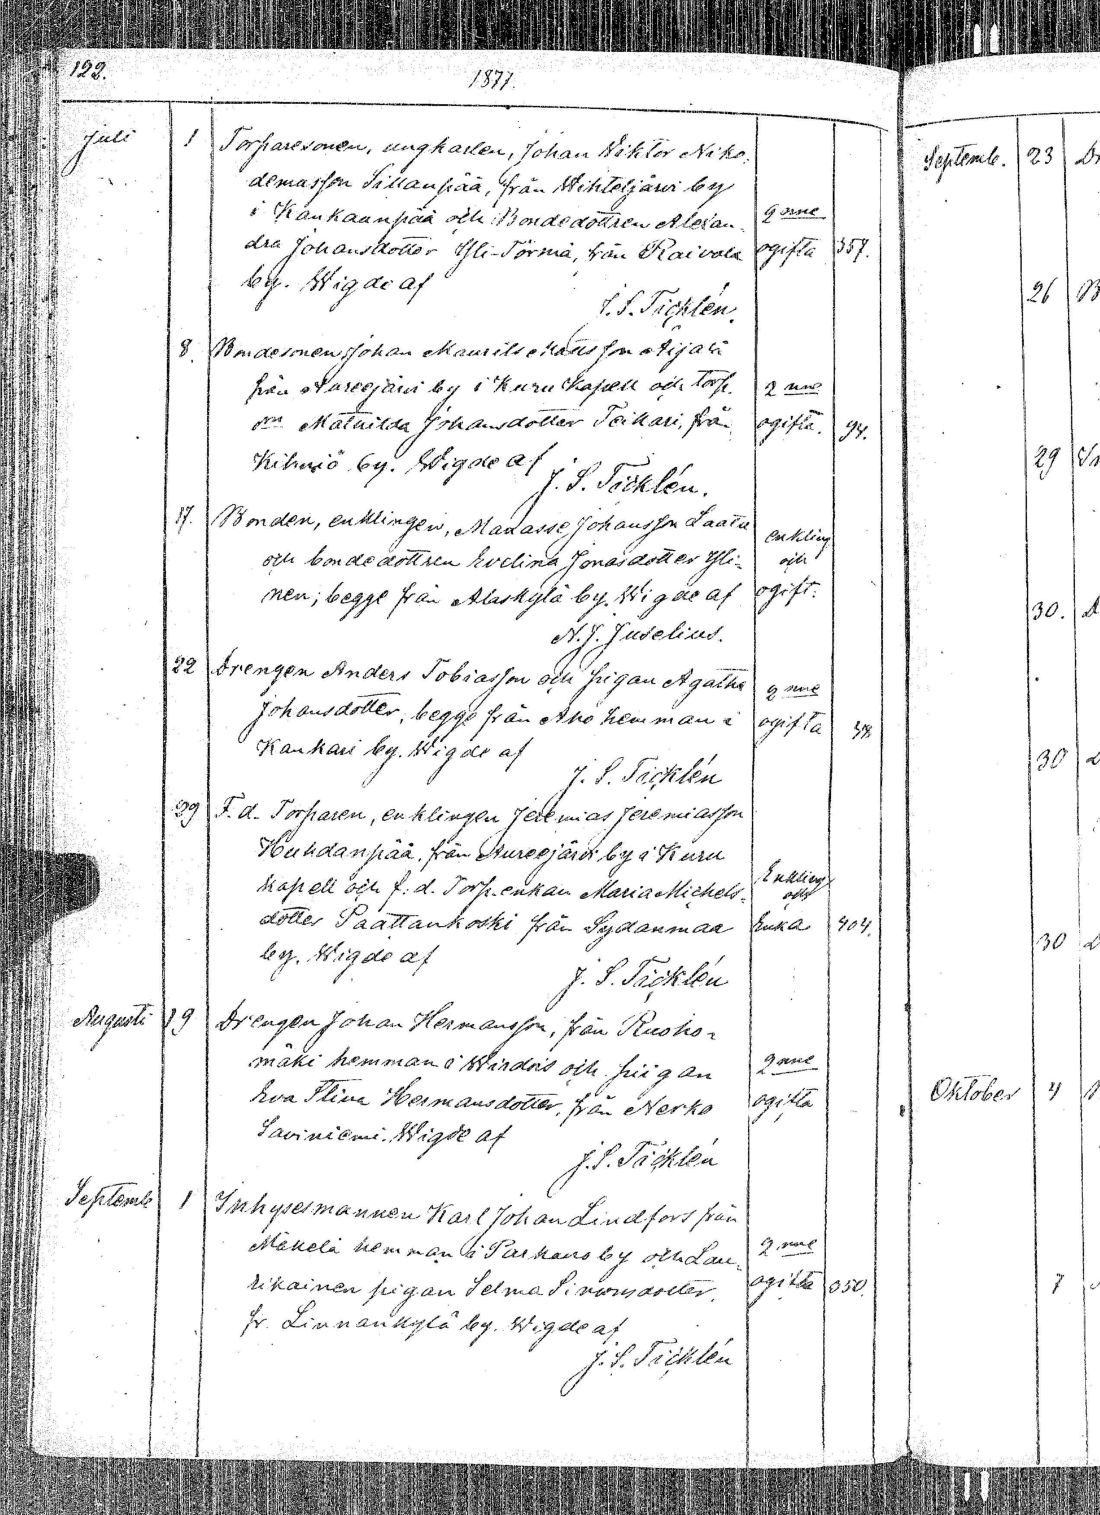 122.
1877.
Juli 1 Torparesonen, ungkarlen, Johan Wiktor Niko-
demusson Sillanpää, från Wihteljärvi by
i Kankaanpää och Bondedottren Alexan- 2nne
dra Johansdotter Yli-Törmä, från Raivala ogifta 357.
by. Wigde af
J. S. Ticklén.
8. Bondesonen Johan Maurits Mattsson Äijälä
från Aureejärvi by i Kuru Kapell och Torp. 2 nne
Mathilda Johansdotter Teikari, från ogifta. 94.
Kihniö by. Wigde af
J. S. Ticklén.
17. Bonden, enklingen, Manasse Johansson Laatu enkling
och bondedottren Evelina Jonasdotter Yli- och
nen; begge från Alaskylä by. Wigde af ogift.
N. J. Juselius.
22 Drengen Anders Tobiasson och pigan Agatha 2 nne
Johansdotter, begge från Aho hemman i ogifta 38
Kankari by. Wigde af
J. S. Ticklén
29 F. d. Torparen, enklingen Jeremias Jeremiasson
Huhdanpää, från Aureejärvi by i Kuru
Kapell och f. d. Torp.enkan Maria Michels- Enkling och
dotter Paattankoski från Sydänmaa Enka 404.
by. Wigde af
J. S. Ticklén
Augusti 19 Drengen Johan Hermansson, från Ruoho-
mäki hemman i Wirdois och pigan 2 nne
Eva Stina Hermansdotter, från Nerko ogifta
Saviniemi. Wigde af
J. S. Ticklén
Septemb. 1 Inhysesmannen Karl Johan Lindfors från
Mäkelä hemman i Parkano by och Lau- 2 nne
rikainen pigan Selma Simonsdotter, ogifta 350.
fr. Linnankylä by. Wigde af
J. S. Ticklén
Septemb. 23
26
29
30.
30
30
Oktober 4
7